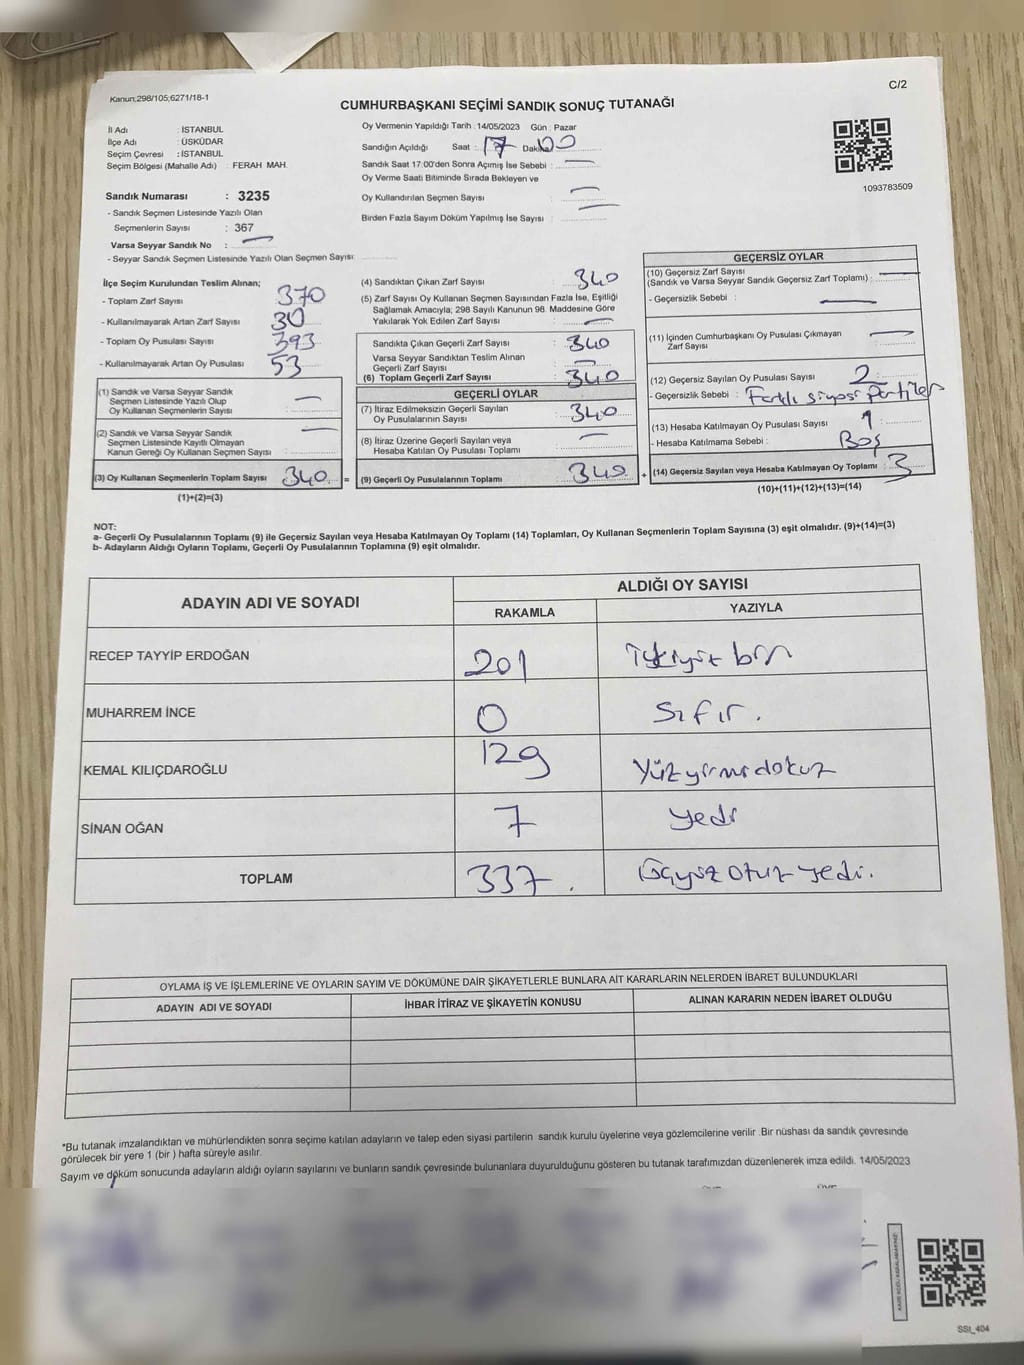 Kanun;298/105;6271/18-1
C/2
CUMHURBAŞKANI SEÇİMİ SANDIK SONUÇ TUTANAĞI
İl Adı : İSTANBUL
İlçe Adı : ÜSKÜDAR
Seçim Çevresi : İSTANBUL
Seçim Bölgesi (Mahalle Adı) : FERAH MAH.
Sandık Numarası : 3235
- Sandık Seçmen Listesinde Yazılı Olan
Seçmenlerin Sayısı : 367
Varsa Seyyar Sandık No : —
- Seyyar Sandık Seçmen Listesinde Yazılı Olan Seçmen Sayısı:
Oy Vermenin Yapıldığı Tarih : 14/05/2023 Gün : Pazar
Sandığın Açıldığı Saat : 17 Dakika 00
Sandık Saat 17:00'den Sonra Açımış İse Sebebi : —
Oy Verme Saati Bitiminde Sırada Bekleyen ve
Oy Kullandırılan Seçmen Sayısı : —
Birden Fazla Sayım Döküm Yapılmış İse Sayısı : —
1093783509
İlçe Seçim Kurulundan Teslim Alınan;
- Toplam Zarf Sayısı : 370
- Kullanılmayarak Artan Zarf Sayısı : 30
- Toplam Oy Pusulası Sayısı : 393
- Kullanılmayarak Artan Oy Pusulası : 53
(1) Sandık ve Varsa Seyyar Sandık
Seçmen Listesinde Yazılı Olup
Oy Kullanan Seçmenlerin Sayısı : —
(2) Sandık ve Varsa Seyyar Sandık
Seçmen Listesinde Kayıtlı Olmayan
Kanun Gereği Oy Kullanan Seçmen Sayısı : —
(3) Oy Kullanan Seçmenlerin Toplam Sayısı : 340 =
(1)+(2)=(3)
(4) Sandıktan Çıkan Zarf Sayısı : 340
(5) Zarf Sayısı Oy Kullanan Seçmen Sayısından Fazla İse, Eşitliği
Sağlamak Amacıyla; 298 Sayılı Kanunun 98. Maddesine Göre
Yakılarak Yok Edilen Zarf Sayısı : —
Sandıkta Çıkan Geçerli Zarf Sayısı : 340
Varsa Seyyar Sandıktan Teslim Alınan
Geçerli Zarf Sayısı : —
(6) Toplam Geçerli Zarf Sayısı : 340
GEÇERLİ OYLAR
(7) İtiraz Edilmeksizin Geçerli Sayılan
Oy Pusulalarının Sayısı : 340
(8) İtiraz Üzerine Geçerli Sayılan veya
Hesaba Katılan Oy Pusulası Toplamı : —
(9) Geçerli Oy Pusulalarının Toplamı : 340 +
GEÇERSİZ OYLAR
(10) Geçersiz Zarf Sayısı
(Sandık ve Varsa Seyyar Sandık Geçersiz Zarf Toplamı) : —
- Geçersizlik Sebebi : —
(11) İçinden Cumhurbaşkanı Oy Pusulası Çıkmayan
Zarf Sayısı : —
(12) Geçersiz Sayılan Oy Pusulası Sayısı : 2
- Geçersizlik Sebebi : Farklı siyasi Partiler
(13) Hesaba Katılmayan Oy Pusulası Sayısı : 1
- Hesaba Katılmama Sebebi : Boş
(14) Geçersiz Sayılan veya Hesaba Katılmayan Oy Toplamı : 3
(10)+(11)+(12)+(13)=(14)
NOT:
a- Geçerli Oy Pusulalarının Toplamı (9) ile Geçersiz Sayılan veya Hesaba Katılmayan Oy Toplamı (14) Toplamları, Oy Kullanan Seçmenlerin Toplam Sayısına (3) eşit olmalıdır. (9)+(14)=(3)
b- Adayların Aldığı Oyların Toplamı, Geçerli Oy Pusulalarının Toplamına (9) eşit olmalıdır.
ADAYIN ADI VE SOYADI
ALDIĞI OY SAYISI
RAKAMLA YAZIYLA
RECEP TAYYİP ERDOĞAN 201 ikiyüz bir
MUHARREM İNCE 0 Sıfır.
KEMAL KILIÇDAROĞLU 129 Yüzyirmidokuz
SİNAN OĞAN 7 yedi
TOPLAM 337. Üçyüz otuz yedi.
OYLAMA İŞ VE İŞLEMLERİNE VE OYLARIN SAYIM VE DÖKÜMÜNE DAİR ŞİKAYETLERLE BUNLARA AİT KARARLARIN NELERDEN İBARET BULUNDUKLARI
ADAYIN ADI VE SOYADI İHBAR İTİRAZ VE ŞİKAYETİN KONUSU ALINAN KARARIN NEDEN İBARET OLDUĞU
*Bu tutanak imzalandıktan ve mühürlendikten sonra seçime katılan adayların ve talep eden siyasi partilerin sandık kurulu üyelerine veya gözlemcilerine verilir .Bir nüshası da sandık çevresinde
görülecek bir yere 1 (bir ) hafta süreyle asılır.
Sayım ve döküm sonucunda adayların aldığı oyların sayılarını ve bunların sandık çevresinde bulunanlara duyurulduğunu gösteren bu tutanak tarafımızdan düzenlenerek imza edildi. 14/05/2023
SSI_404